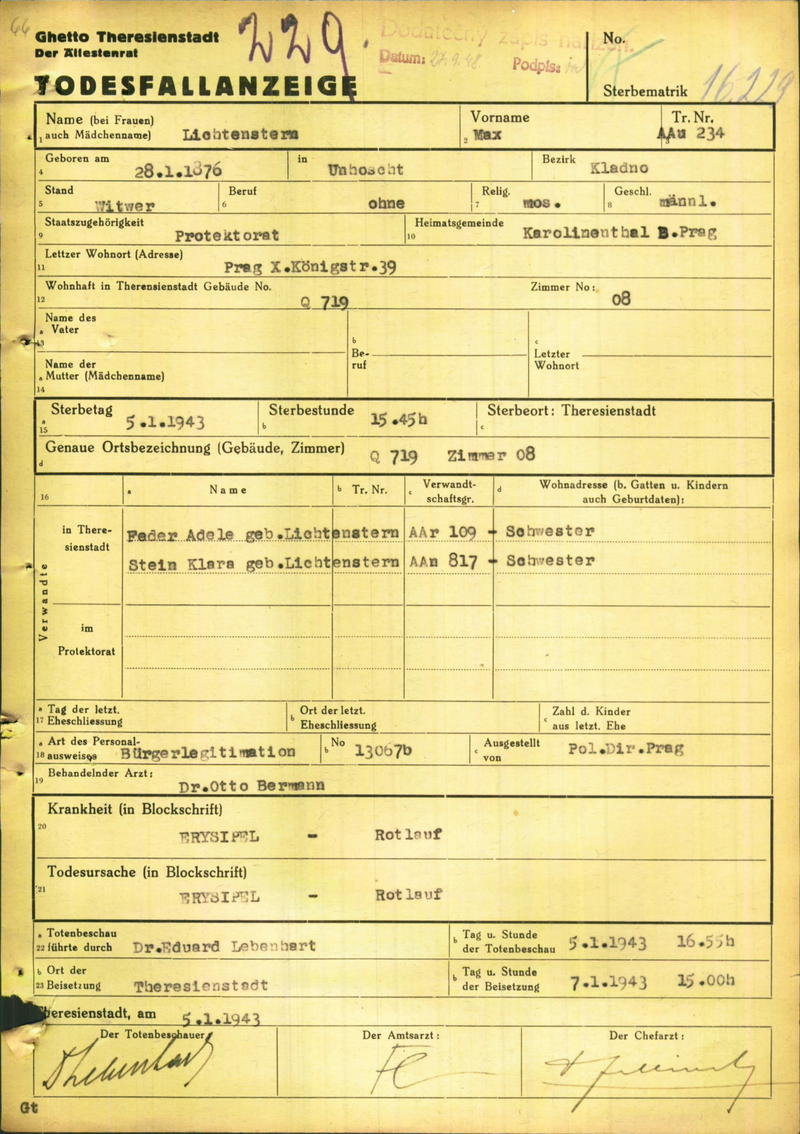 66
Ghetto Theresienstadt
Der Ältestenrat
229.
Dodatečný zápis nařízen.
Datum: 27.9.48 Podpis:
No.
TODESFALLANZEIGE
Sterbematrik 16.229
Name (bei Frauen) Vorname Tr. Nr.
1 auch Mädchenname) Lichtenstern 2 Max AAu 234
Geboren am in Bezirk
4 28.1.1876 Unhoscht Kladno
Stand Beruf Relig. Geschl.
5 Witwer 6 ohne 7 mos. 8 männl.
Staatszugehörigkeit Heimatsgemeinde
9 Protektorat 10 Karolinenthal B.Prag
Lettzer Wohnort (Adresse)
11 Prag X.Königstr.39
Wohnhaft in Therensienstadt Gebäude No. Zimmer No:
12 Q 719 08
Name des
a Vater b c
13 Be- Letzter
Name der ruf Wohnort
a Mutter (Mädchenname)
14
Sterbetag Sterbestunde Sterbeort: Theresienstadt
a 15 5.1.1943 b 15.45h c
Genaue Ortsbezeichnung (Gebäude, Zimmer) Q 719 Zimmer 08
d
16 a Name b Tr. Nr. c Verwandt- d Wohnadresse (b. Gatten u. Kindern
schaftsgr. auch Geburtdaten):
Verwandte
in There- Feder Adele geb.Lichtenstern AAr 109 - Schwester
sienstadt
Stein Klara geb.Lichtenstern AAn 817 - Schwester
im
Protektorat
a Tag der letzt. Ort der letzt. Zahl d. Kinder
17 Eheschliessung b Eheschliessung c aus letzt. Ehe
a Art des Personal- No Ausgestellt
18 ausweises Bürgerlegitimation b 13067b c von Pol.Dir.Prag
Behandelnder Arzt:
19 Dr.Otto Bermann
Krankheit (in Blockschrift)
20 ERYSIPEL - Rotlauf
Todesursache (in Blockschrift)
21 ERYSIPEL - Rotlauf
a Totenbeschau b Tag u. Stunde
22 führte durch Dr.Eduard Lebenhart der Totenbeschau 5.1.1943 16.55h
b Ort der b Tag u. Stunde
23 Beisetzung Theresienstadt der Beisetzung 7.1.1943 15.00h
Theresienstadt, am 5.1.1943
Der Totenbeschauer: Der Amtsarzt: Der Chefarzt:
Gt